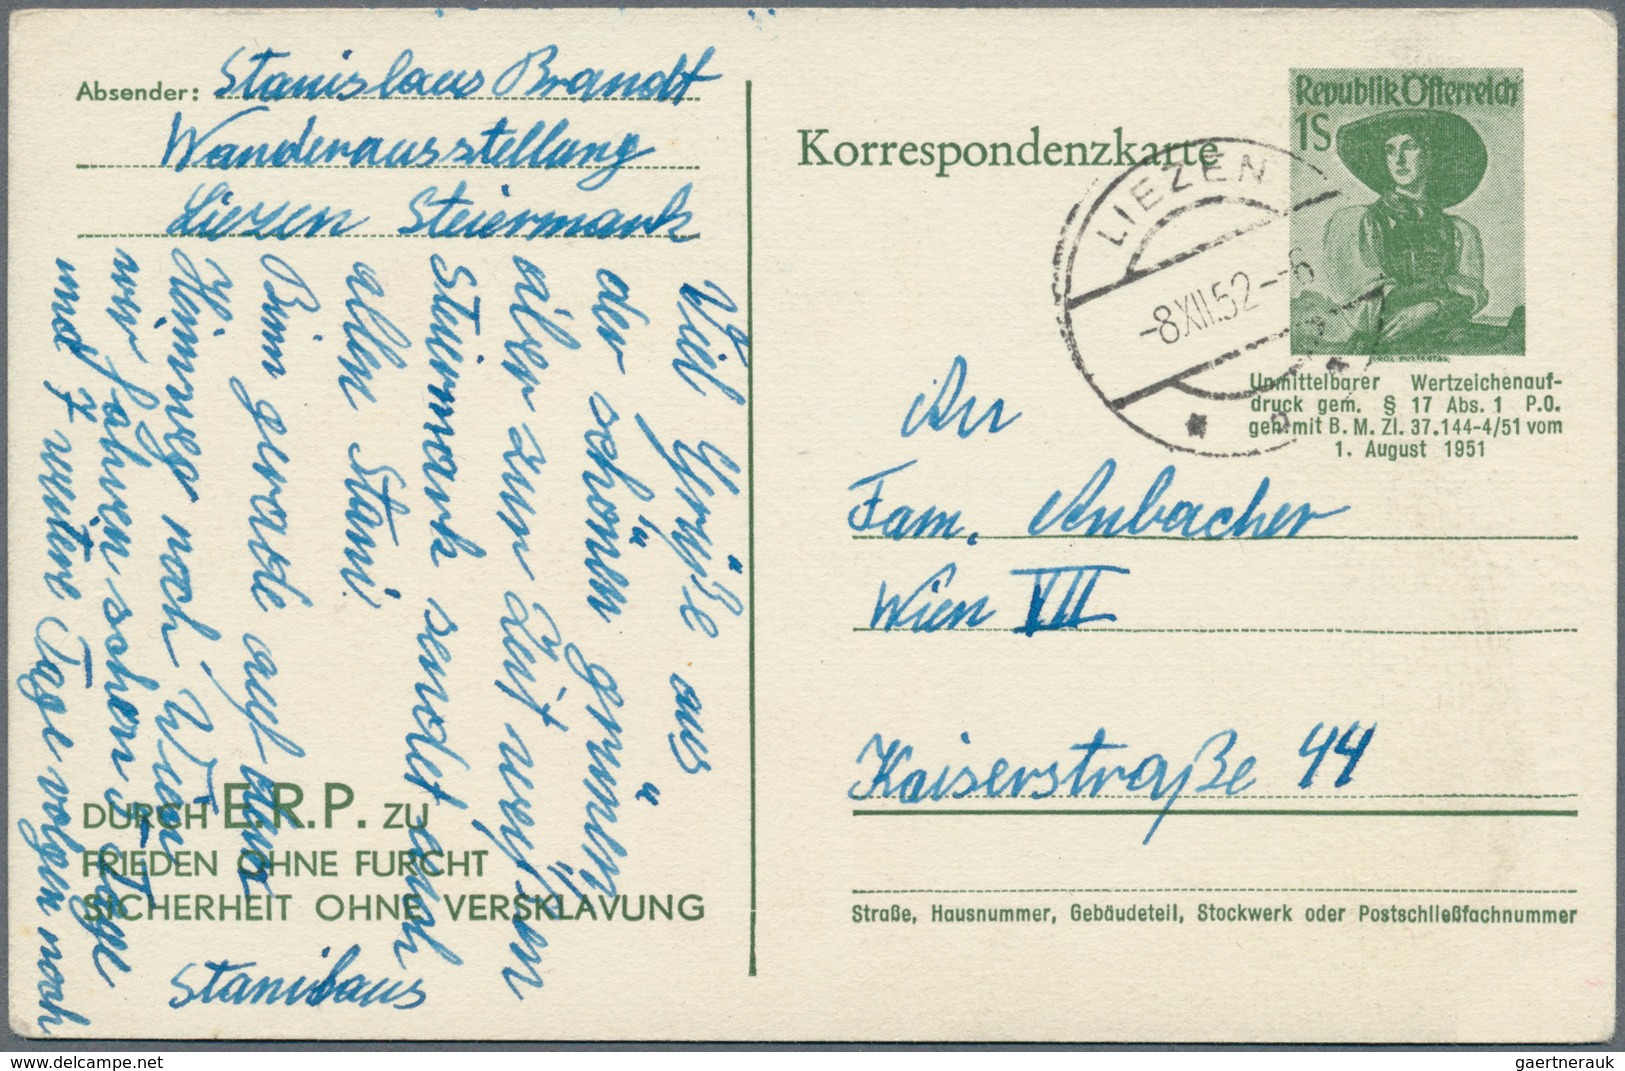 Absender: Stanislaus Brandt
Wanderausstellung
Liezen Steiermark
Viel Grüße aus
der schönen "grünen"
aber zur Zeit weißen
Steiermark sendet euch
allen Stani.
Bin gerade auf dem
Heimweg nach Wien
wir fahren schon 5 Tage
und 7 weitere Tage folgen noch
Stanislaus
DURCH E.R.P. ZU
FRIEDEN OHNE FURCHT
SICHERHEIT OHNE VERSKLAVUNG
Korrespondenzkarte
Republik Österreich
1S
LIEZEN
-8.XII.52--6
Unmittelbarer Wertzeichenauf-
druck gem. § 17 Abs. 1 P.O.
geh. mit B. M. Zl. 37.144-4/51 vom
1. August 1951
An
Fam. Anbacher
Wien VII
Kaiserstraße 44
Straße, Hausnummer, Gebäudeteil, Stockwerk oder Postschließfachnummer
www.delcampe.net
gaertnerauk